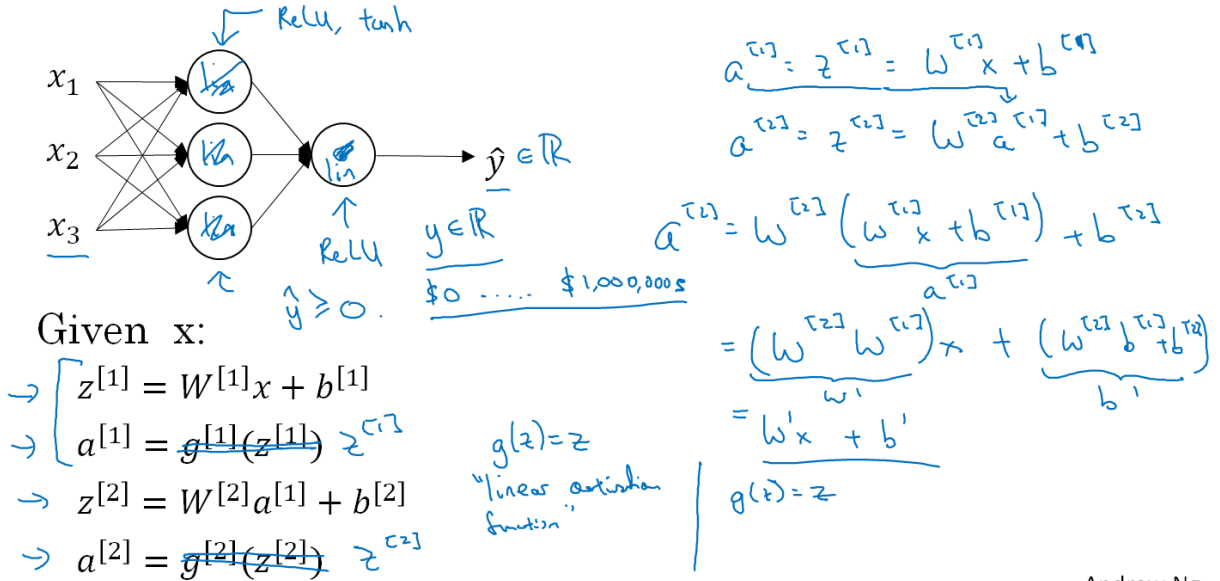 ReLU, tanh
x₁
x₂
x₃
lin
ŷ ∈ ℝ
ReLU
y ∈ ℝ
ŷ ≥ 0.
$0 ..... $1,000,000s
Given x:
→ z^[1] = W^[1]x + b^[1]
→ a^[1] = g^[1](z^[1]) z^[1]
→ z^[2] = W^[2]a^[1] + b^[2]
→ a^[2] = g^[2](z^[2]) z^[2]
g(z) = z
"linear activation
function"
a^[1] = z^[1] = W^[1]x + b^[1]
a^[2] = z^[2] = W^[2]a^[1] + b^[2]
a^[2] = W^[2](W^[1]x + b^[1]) + b^[2]
a^[1]
= (W^[2]W^[1])x + (W^[2]b^[1] + b^[2])
W' b'
= W'x + b'
g(z) = z